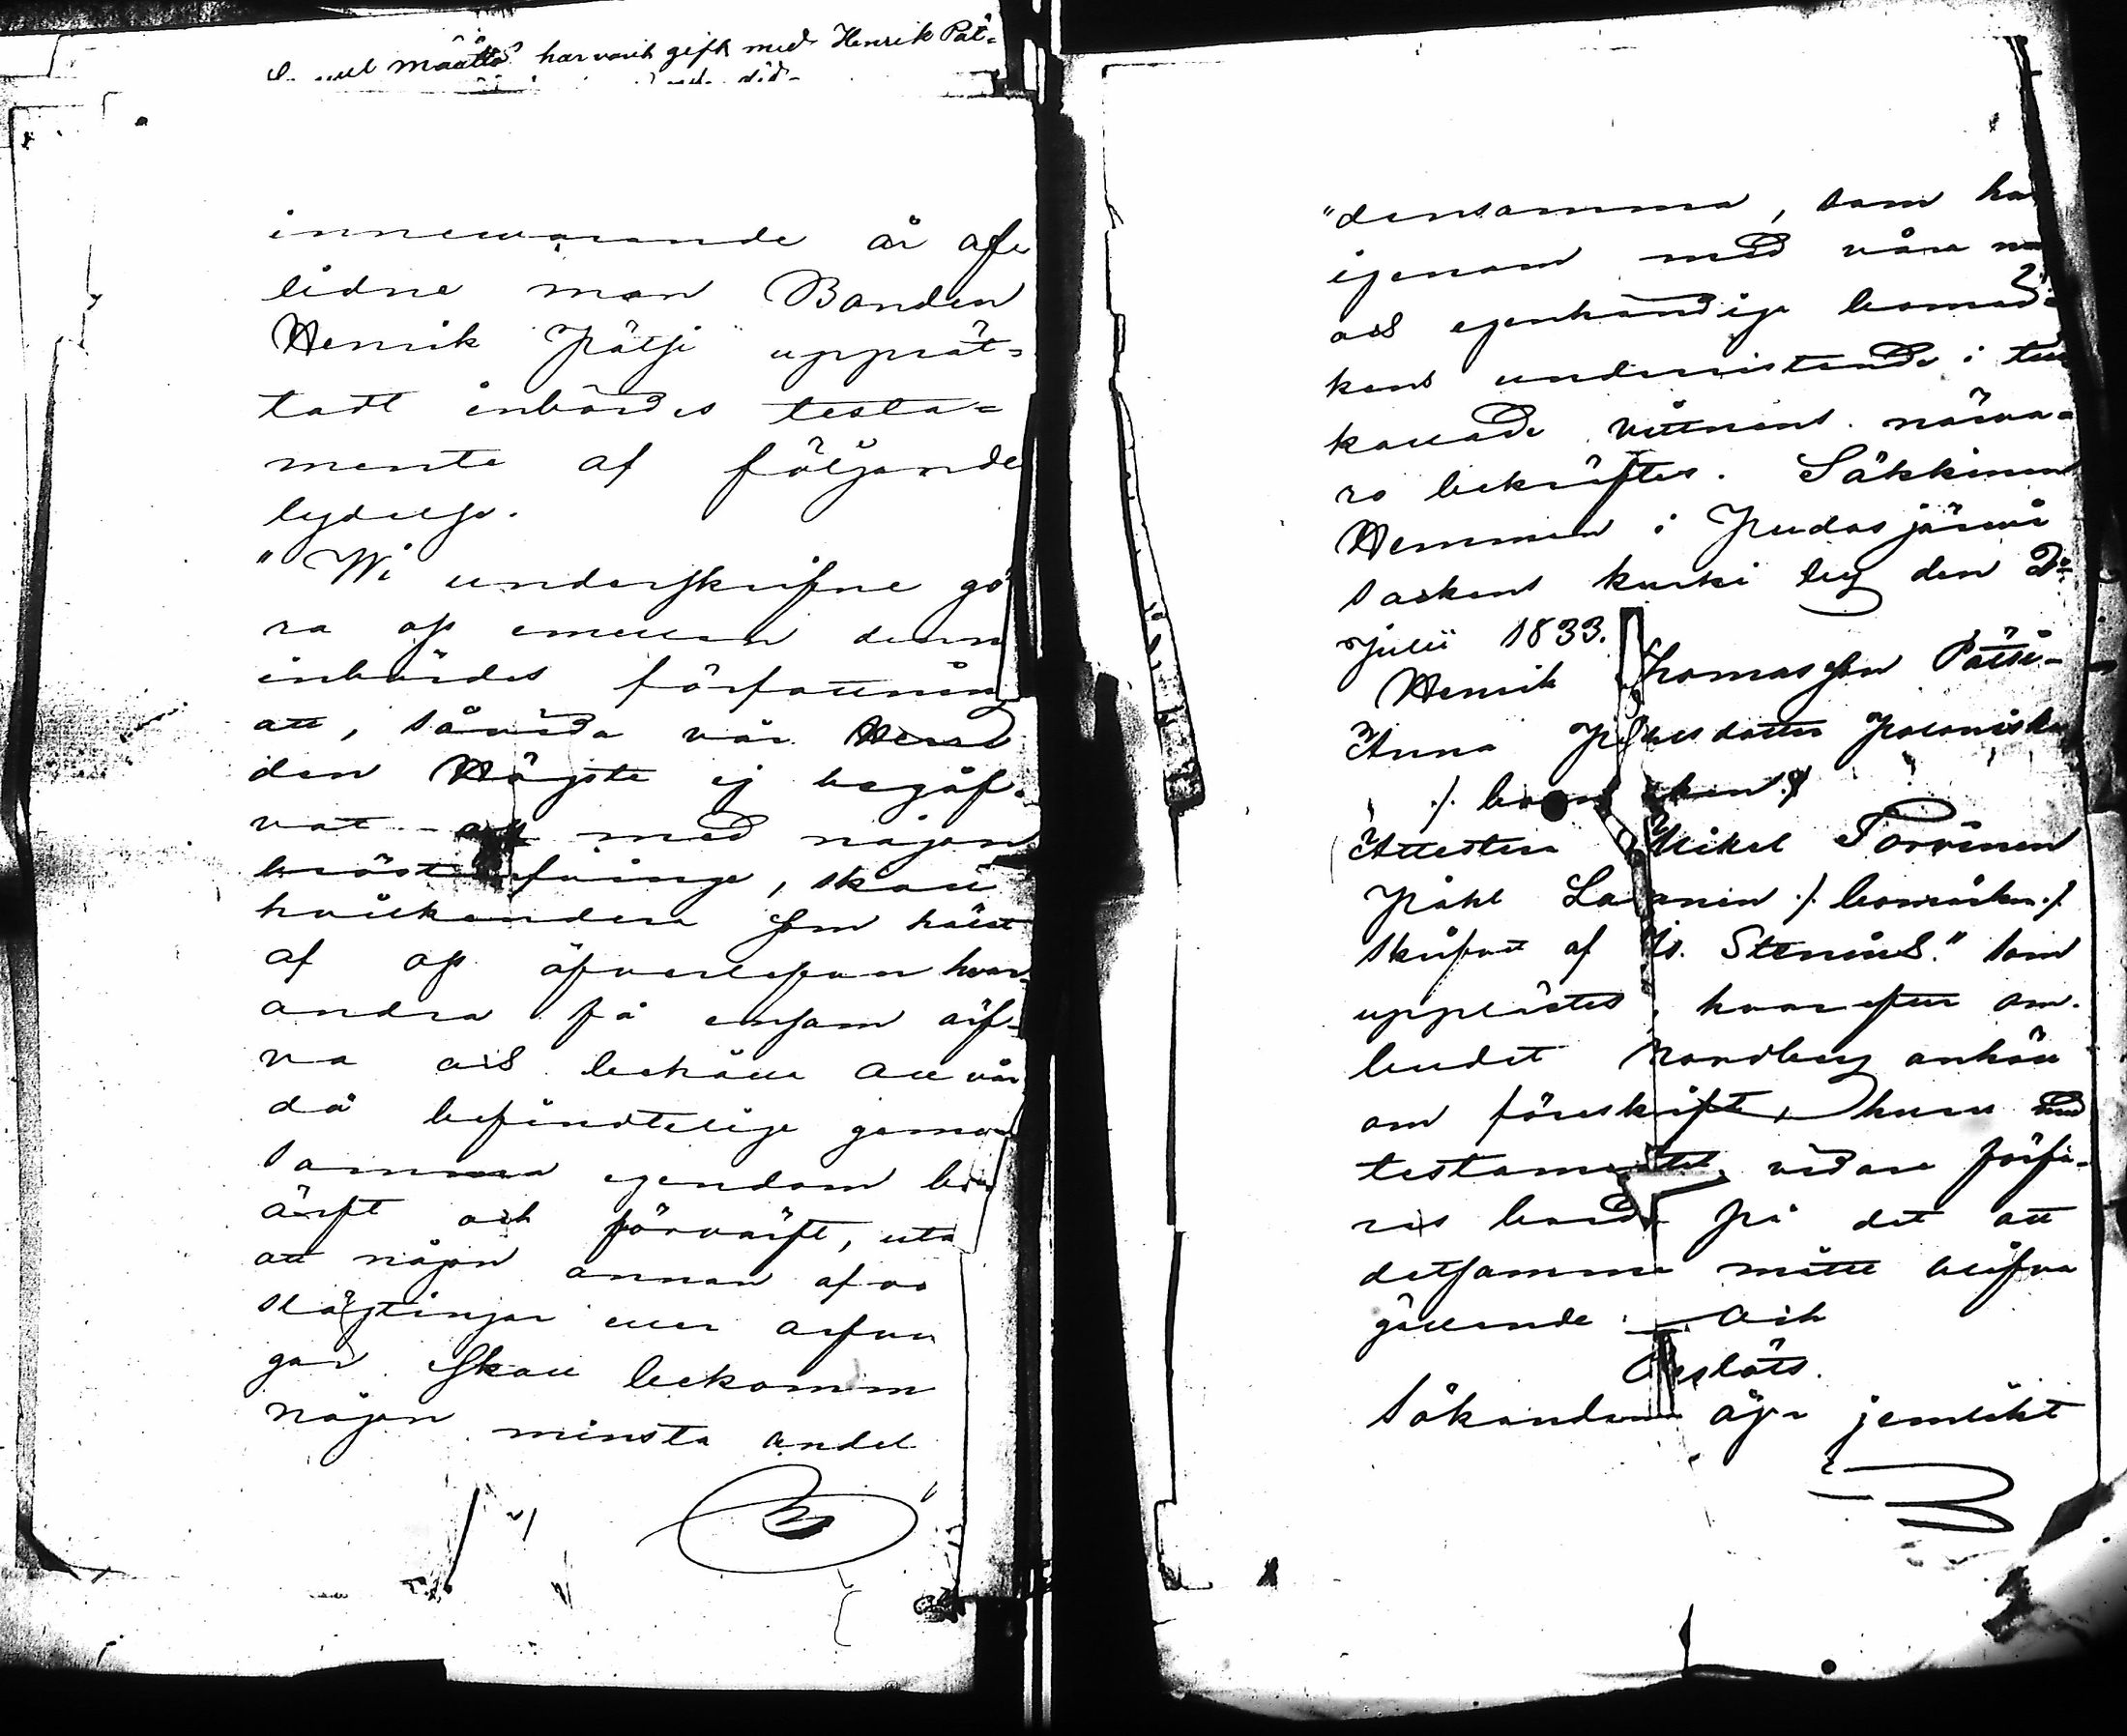 måått̃å har varit gift med Henrik Pät-
innewarande år afe
lidne man Bonden
Henrik Pätsi upprät-
tadt inbördes testa-
mente af följande
lydelse.
"Wi underskrifne gö
ra oss emellan denna
inbördes författnin
att, såvida vår Herre
den Högste ej begåf-
vat oss med någon
bröst arfvinge, skall
hvilkendera som hälst
af oss öfverlefver hvar-
andra få ensam ärf-
va och behålla all vår
då befindtelige geme
samma egendom bå
ärft och förvärft, uta
att någon annan af vå
slägtingar eller arfvin
gar skall bekomm
någon minsta andel
"densamma, som ha
igenom med våra
och egenhändige bomär
kens undersittande i till
kallade vittnens närva-
ro bekräftes. Säkkinen
Hemman i Pudasjärvi
Sockens kurki by den 2:
Julii 1833.
Henrik Thomasson Pätsi-
Anna dotter
./. bomärken ./.
Attestera Mikel Torvinen
Påhl ./. bomärken ./.
Skrifvit af Is. Stenius." som
upplästes, hvarefter om-
budet Nordberg anhöll
om föreskrift, huru med
testamentet vidare förfa-
ras borde på det att
detsamma måtte blifva
gällande. Och
Beslöts.
Sökanden äga jemlikt